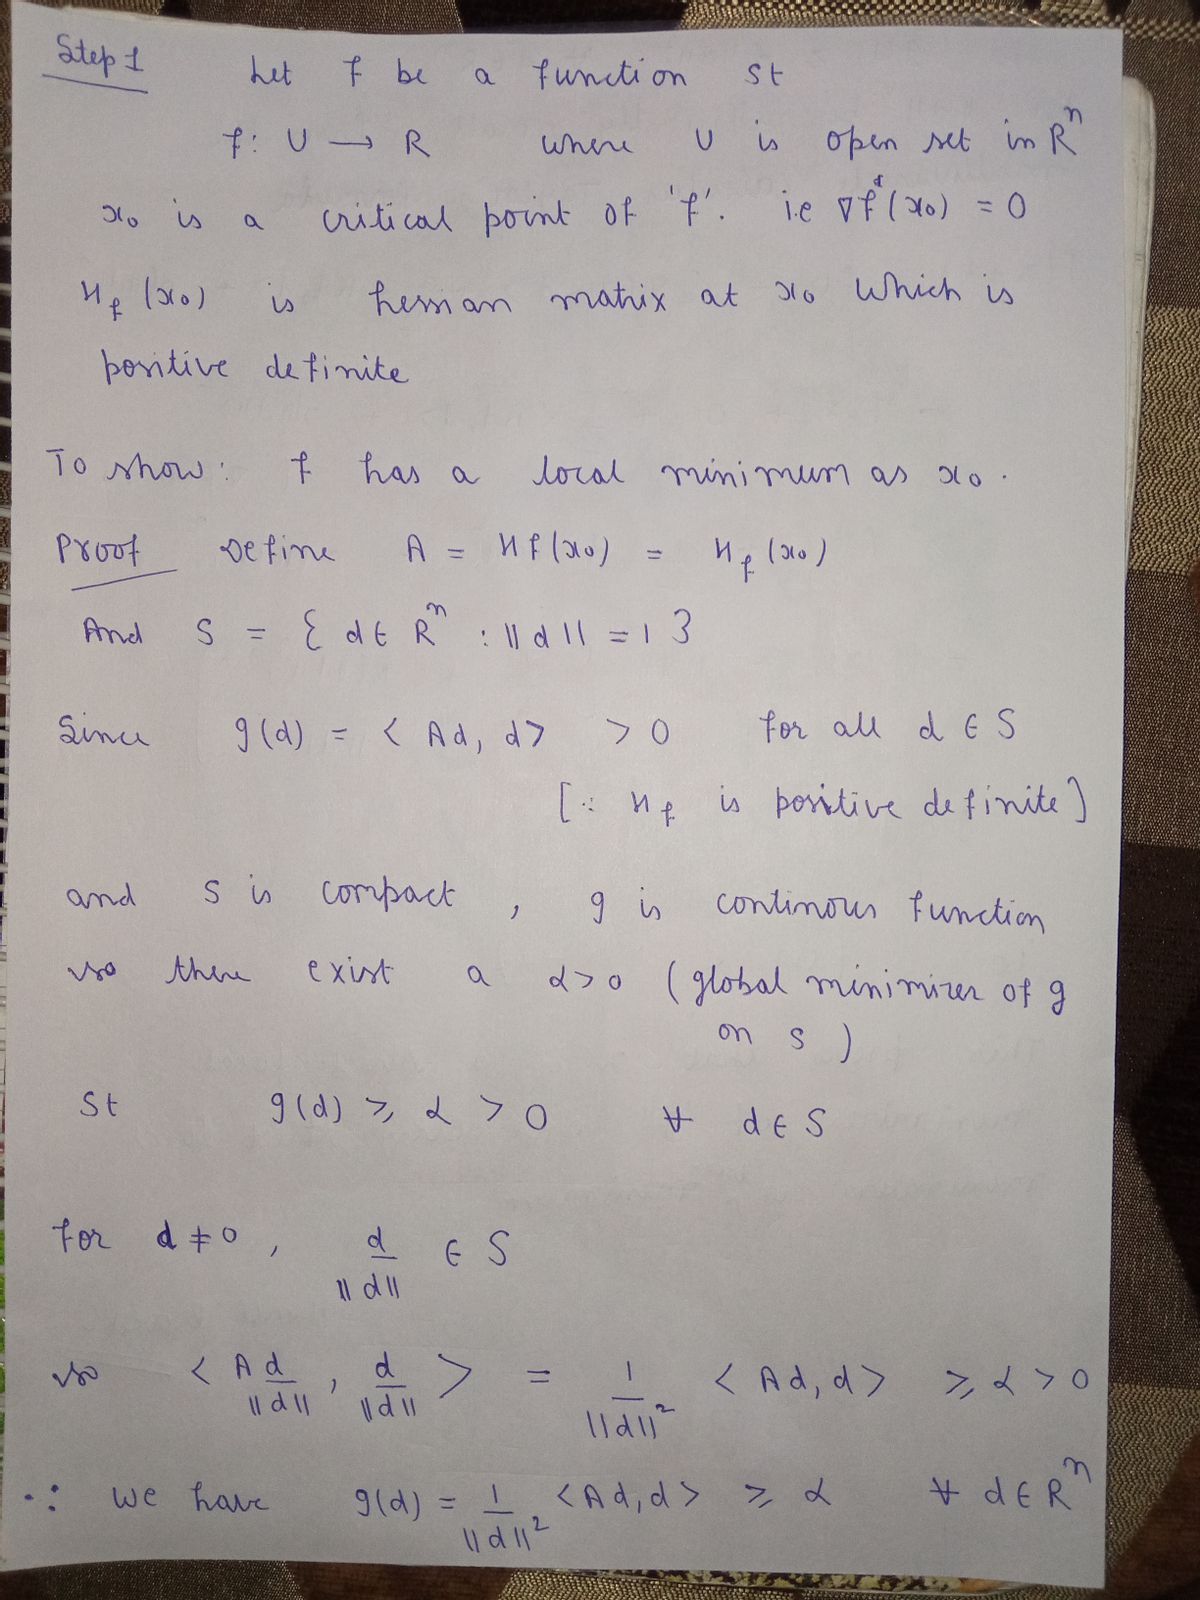 Step 1 Let f be a function st
f: U → R where U is open set in Rⁿ
x₀ is a critical point of 'f'. i.e ∇f(x₀) = 0
H_f (x₀) is hessian matrix at x₀ which is
positive definite
To show: f has a local minimum as x₀.
Proof Define A = Hf(x₀) = H_f (x₀)
And S = { d ∈ Rⁿ : ||d|| = 1 }
Since g(d) = < Ad, d> > 0 for all d ∈ S
[∵ H_f is positive definite]
and S is compact , g is continous function
so there exist a α>0 (global minimizer of g
on S )
St g(d) ≥ α > 0 ∀ d ∈ S
For d ≠ 0 , d/||d|| ∈ S
so < A d/||d|| , d/||d|| > = 1/||d||² < Ad, d> ≥ α > 0
∴ we have g(d) = 1/||d||² <Ad, d> ≥ α ∀ d ∈ Rⁿ